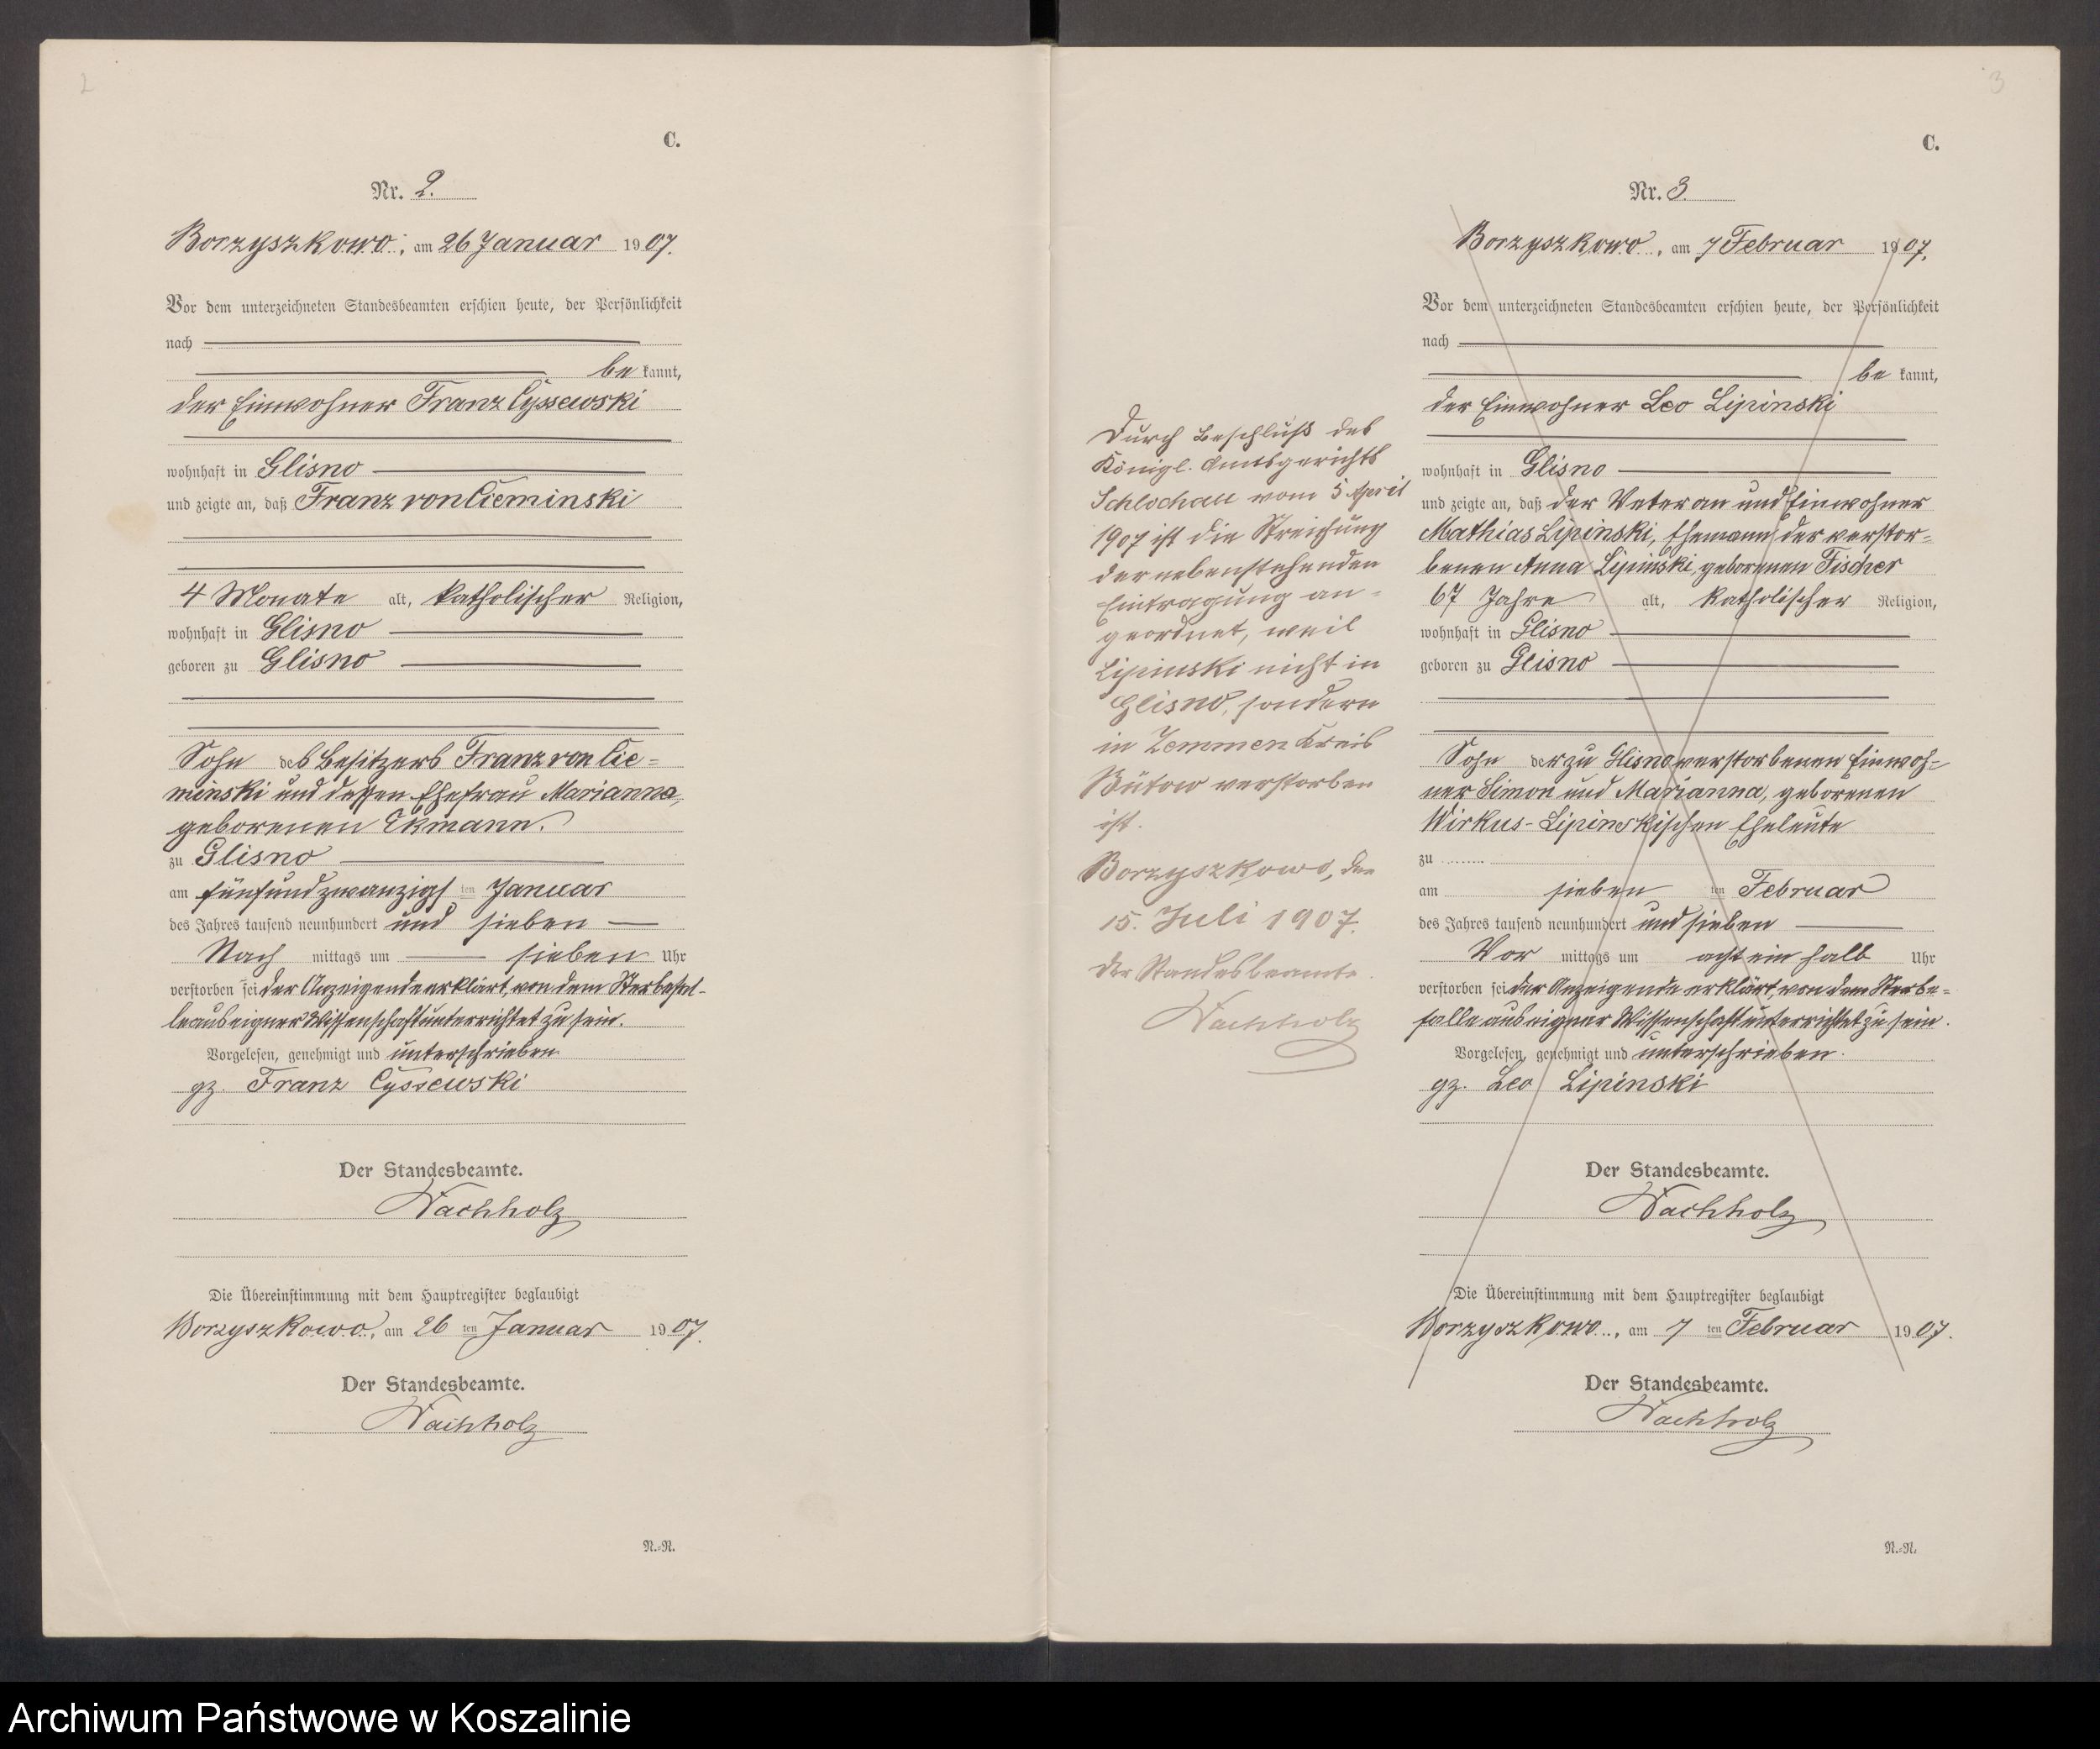 2
C.
Nr. 2.
Borzyszkowo, am 26 Januar 1907.
Vor dem unterzeichneten Standesbeamten erschien heute, der Persönlichkeit
nach
be kannt,
der Einwohner Franz Cyssewski
wohnhaft in Glisno
und zeigte an, daß Franz von Cieminski
4 Monate alt, katholischer Religion,
wohnhaft in Glisno
geboren zu Glisno
Sohn des Besitzers Franz von Cie-
minski und dessen Ehefrau Marianna,
geborenen Ekmann.
zu Glisno
am fünfundzwanzigs ten Januar
des Jahres tausend neunhundert und sieben
Nach mittags um sieben Uhr
verstorben sei der Anzeigende erklärt, von dem Sterbefal-
le aus eigner Wissenschaft unterrichtet zu sein.
Vorgelesen, genehmigt und unterschrieben
gz. Franz Cyssewski
Der Standesbeamte.
Wachholz
Die Übereinstimmung mit dem Hauptregister beglaubigt
Borzyszkowo, am 26 ten Januar 1907.
Der Standesbeamte.
Wachholz
N.-N.
3
C.
Nr. 3.
Borzyszkowo, am 7 Februar 1907.
Vor dem unterzeichneten Standesbeamten erschien heute, der Persönlichkeit
nach
be kannt,
der Einwohner Leo Lipinski
wohnhaft in Glisno
und zeigte an, daß der Veteran und Einwohner
Mathias Lipinski, Ehemann der verstor-
benen Anna Lipinski, geborenen Fischer
67 Jahre alt, katholischer Religion,
wohnhaft in Glisno
geboren zu Glisno
Sohn der zu Glisno verstorbenen Einwoh-
ner Simon und Marianna, geborenen
Wirkus-Lipinskischen Eheleute
zu
am sieben ten Februar
des Jahres tausend neunhundert und sieben
Vor mittags um acht ein halb Uhr
verstorben sei der Anzeigende erklärt, von dem Sterbe-
falle aus eigner Wissenschaft unterrichtet zu sein.
Vorgelesen, genehmigt und unterschrieben.
gz. Leo Lipinski
Der Standesbeamte.
Wachholz
Die Übereinstimmung mit dem Hauptregister beglaubigt
Borzyszkowo, am 7 ten Februar 1907.
Der Standesbeamte.
Wachholz
N.-N.
Durch Beschluß des
Königl. Amtsgerichts
Schlochau vom 5 April
1907 ist die Streichung
der nebenstehenden
Eintragung an-
geordnet, weil
Lipinski nicht in
Glisno, sondern
in Zemmen Kreis
Bütow verstorben
ist.
Borzyszkowo, den
15. Juli 1907.
Der Standesbeamte.
Wachholz
Archiwum Państwowe w Koszalinie